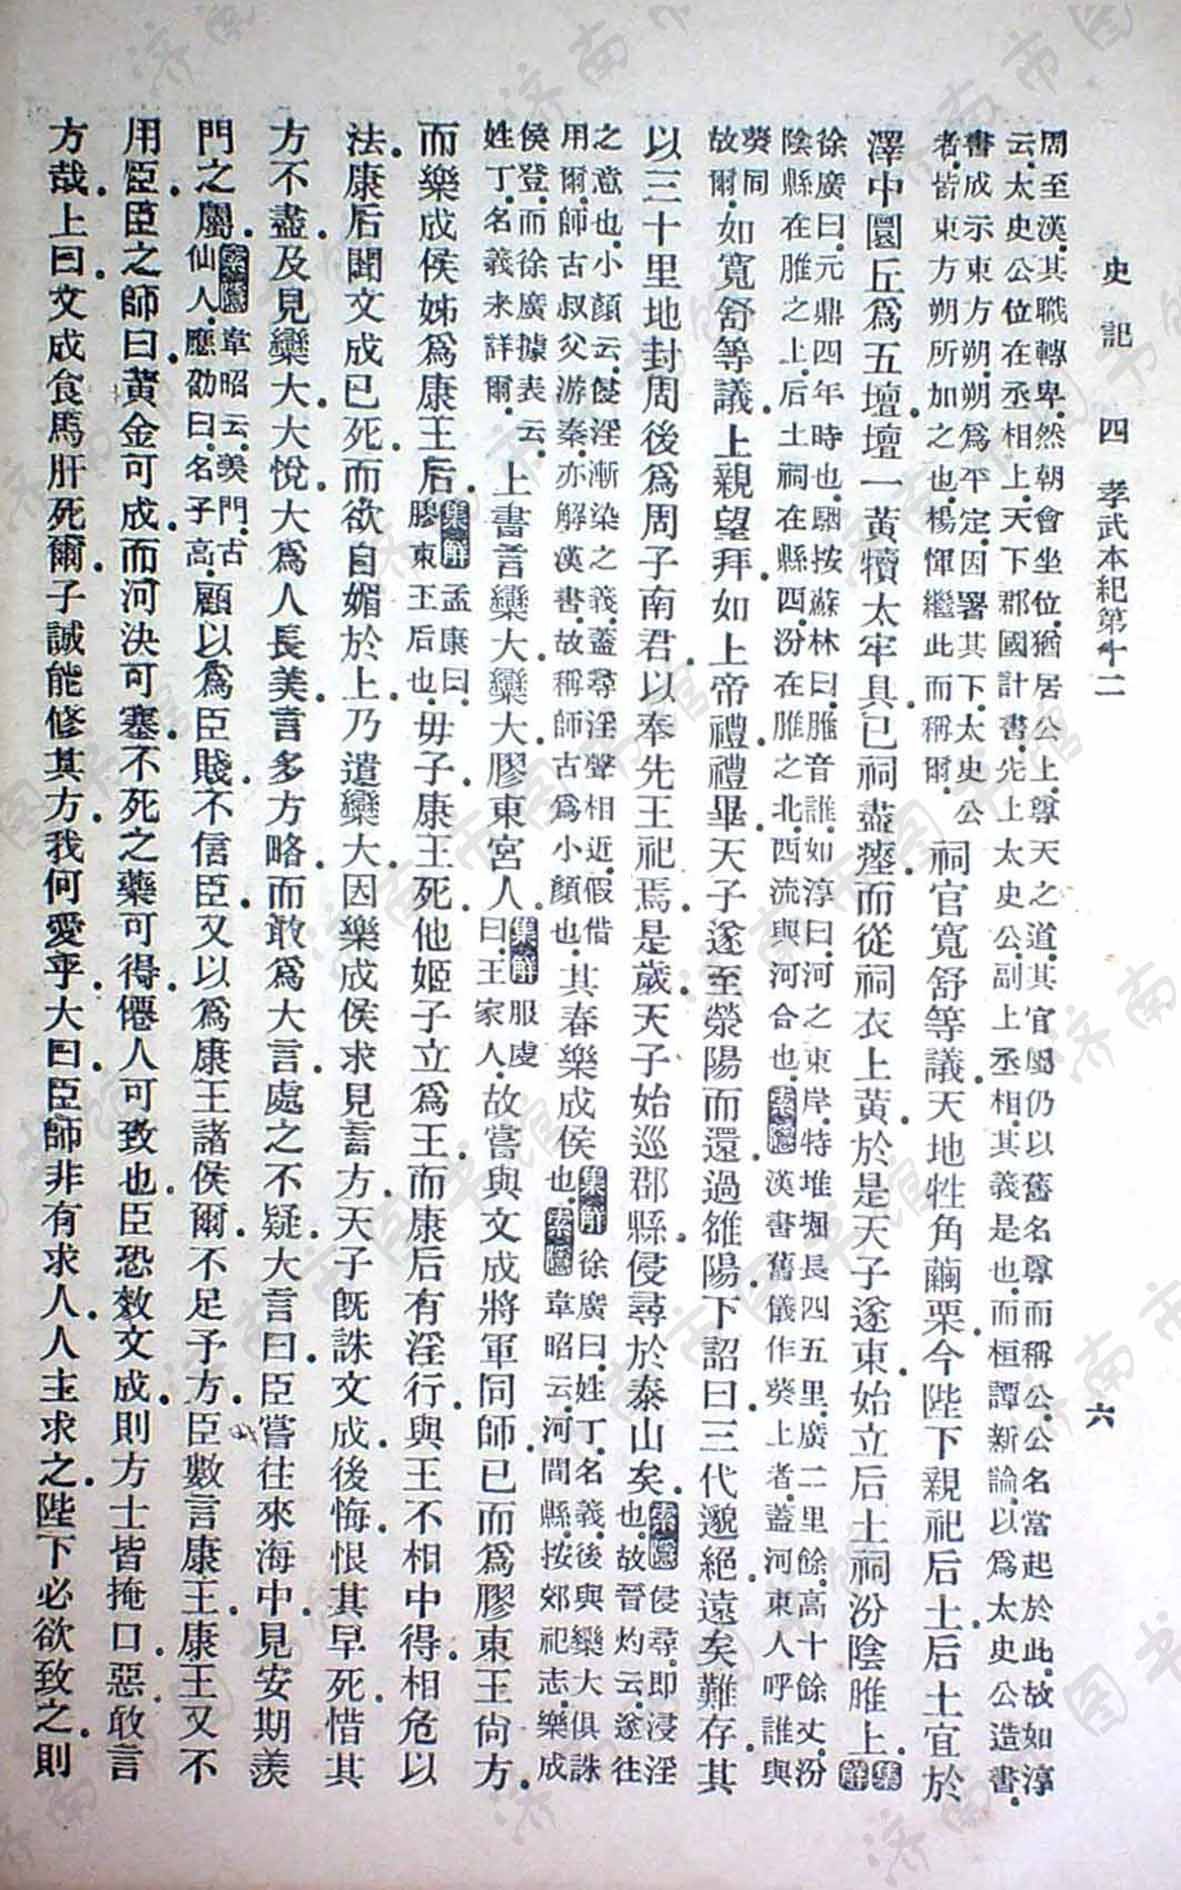 史記 四 孝武本紀第十二 六
周至漢．其職轉卑．然朝會坐位．猶居公上．尊天之道．其官屬仍以舊名尊而稱公．公名當起於此．故如淳
云．太史公位在丞相上．天下郡國計書．先上太史公．副上丞相．其義是也．而桓譚新論．以爲太史公造書．
書成示東方朔．朔爲平定．因署其下．太史公
者．皆東方朔所加之也．楊惲繼此而稱爾．
祠官寬舒等議．天地牲角繭栗．今陛下親祀后土．后土宜於
澤中圜丘爲五壇．壇一黃犢太牢具．已祠盡瘞．而從祠衣上黃．於是天子遂東．始立后土祠汾陰脽上．集解
徐廣曰．元鼎四年時也．駰按蘇林曰．脽音誰．如淳曰．河之東岸．特堆堀長四五里．廣二里餘．高十餘丈．汾
陰縣在脽之上．后土祠在縣西．汾在脽之北．西流與河合也．索隱漢書舊儀作葵上者．蓋河東人呼誰與
葵同
故爾．
如寬舒等議．上親望拜．如上帝禮．禮畢．天子遂至滎陽而還．過雒陽．下詔曰．三代邈絕．遠矣難存．其
以三十里地封周後爲周子南君．以奉先王祀焉．是歲．天子始巡郡縣．侵尋於泰山矣．索隱侵尋．即浸淫
也．故晉灼云．遂往
之意也．小顏云．侵淫漸染之義．蓋尋淫聲相近．假借
用爾．師古叔父游秦．亦解漢書．故稱師古爲小顏也．
其春．樂成侯集解徐廣曰．姓丁．名義．後與欒大俱誅
也．索隱韋昭云．河間縣．按郊祀志．樂成
侯登．而徐廣據表云．
姓丁．名義．未詳爾．
上書言欒大．欒大．膠東宮人．集解服虔
曰．王家人．
故嘗與文成將軍同師．已而爲膠東王尙方．
而樂成侯姊爲康王后．集解孟康曰．
膠東王后也．
毋子．康王死．他姬子立爲王．而康后有淫行．與王不相中得．相危以
法．康后聞文成已死．而欲自媚於上．乃遣欒大．因樂成侯求見．言方．天子旣誅文成．後悔．恨其早死．惜其
方不盡．及見欒大．大悅．大爲人長美．言多方略．而敢爲大言．處之不疑．大言曰．臣嘗往來海中．見安期羨
門之屬．索隱韋昭云．羨門．古
仙人．應劭曰．名子高．
顧以爲臣賤．不信臣．又以爲康王諸侯爾．不足予方．臣數言康王．康王又不
用臣．臣之師曰．黃金可成．而河決可塞．不死之藥可得．僊人可致也．臣恐效文成．則方士皆掩口．惡敢言
方哉．上曰．文成食馬肝死爾．子誠能修其方．我何愛乎．大曰．臣師非有求人．人主求之．陛下必欲致之．則